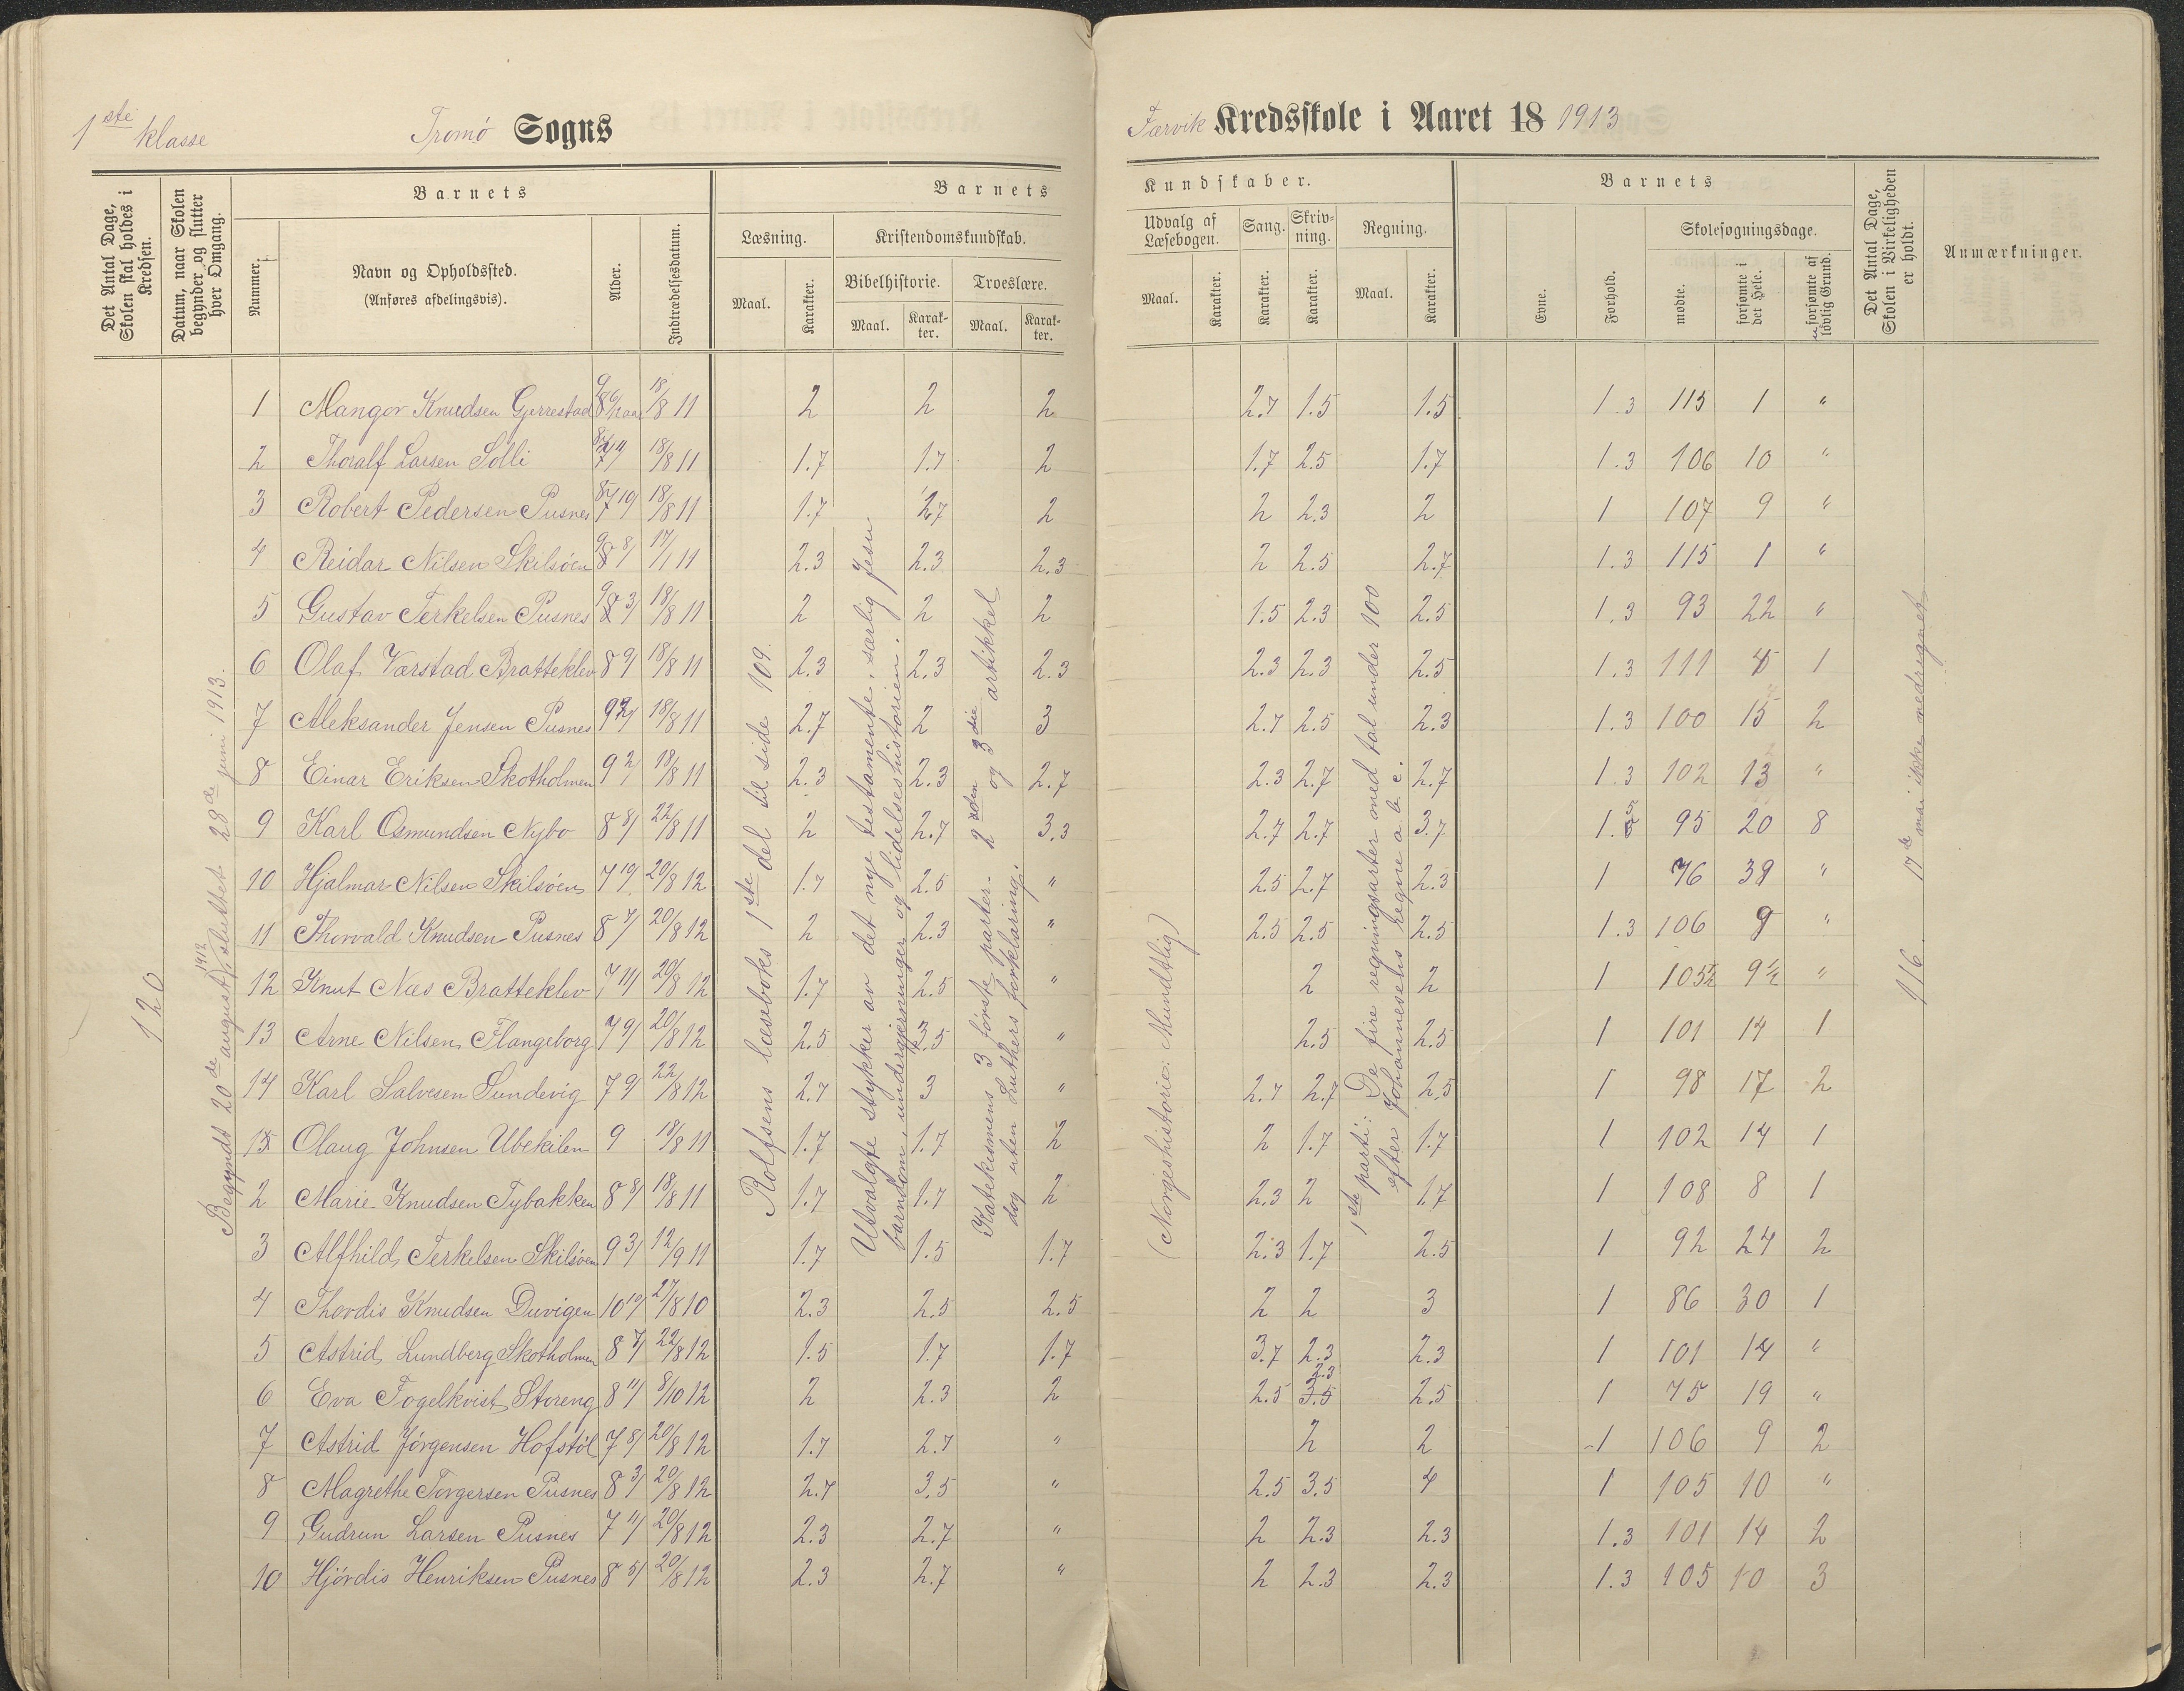 1ste klasse Tromø Sogns
Færvik Kredsskole i Aaret 18 1913
Det Antal Dage, Skolen skal holdes i Kredsen.
Datum, naar Skolen begynder og slutter hver Omgang.
Barnets
Nummer.
Navn og Opholdssted.
(Anføres afdelingsvis).
Alder.
Indtrædelsesdatum.
Barnets Kundskaber.
Læsning.
Maal. Karakter.
Kristendomskundskab.
Bibelhistorie. Troeslære.
Maal. Karakter. Maal. Karakter.
Udvalg af Læsebogen.
Maal. Karakter.
Sang. Karakter.
Skrivning. Karakter.
Regning.
Maal. Karakter.
Barnets
Evne. Forhold.
Skolesøgningsdage.
mødte. forsømte i det Hele. forsømte af lovlig Grund.
Det Antal Dage, Skolen i Virkeligheden er holdt.
Anmærkninger.
120
Begyndt 20de august 1912, sluttet 28de juni 1913.
Rolfsens læseboks 1ste del til side 109.
Utvalgte stykker av det nye testamente, særlig Jesu
barndom, undergjerninger og lidelseshistorien.
Katekismens 3 første parter - 2den og 3die artikkel
dog uten Luthers forklaring.
(Norgeshistorie: Mundtlig)
1ste parti: De fire regningsarter med tal under 100
efter Johannesens regne a. b. c.
116. 17de mai ikke medregnet
1 Mangor Knudsen Gjerrestad 18/8 11 2 2 2 2.7 1.5 1.5 1.3 115 1 "
2 Thoralf Larsen Solli 18/8 11 1.7 1.7 2 1.7 2.5 1.7 1.3 106 10 "
3 Robert Pedersen Pusnes 18/8 11 1.7 2 2 2.3 2 1 107 9 "
4 Reidar Nilsen Skilsøen 17/1 11 2.3 2.3 2.3 2 2.5 2.7 1.3 115 1 "
5 Gustav Terkelsen Pusnes 18/8 11 2 2 2 1.5 2.3 2.5 1.3 93 22 "
6 Olaf Værstad Bratteklev 8 9/ 18/8 11 2.3 2.3 2.3 2.3 2.3 2.5 1.3 111 1
7 Aleksander Jensen Pusnes 9 2/ 18/8 11 2.7 2 3 2.7 2.5 2.3 1.3 100 15 2
8 Einar Eriksen Skotholmen 9 2/ 18/8 11 2.3 2.3 2.7 2.3 2.7 2.7 1.3 102 13 "
9 Karl Osmundsen Nybo 8 8/ 22/8 11 2 2.7 3.3 2.7 2.7 3.7 1. 95 20 8
10 Hjalmar Nilsen Skilsøen 7 10/ 20/8 12 1.7 2.5 " 2.5 2.7 2.3 1 76 39 "
11 Thorvald Knudsen Pusnes 8 7/ 20/8 12 2 2.3 " 2.5 2.5 2.5 1.3 106 9 "
12 Knut Næs Bratteklev 7 11/ 20/8 12 1.7 2.5 " 2 2 1 105½ 9½ "
13 Arne Nilsen Flangeborg 7 9/ 20/8 12 2.5 2.5 " 2.5 2.5 1 101 14 1
14 Karl Salvesen Sundevig 7 9/ 22/8 12 2.7 3 " 2.7 2.7 2.5 1 98 17 2
1 Olaug Johnsen Ubekilen 9 18/8 11 1.7 1.7 2 2 1.7 1.7 1 102 14 1
2 Marie Knudsen Tybakken 8 8/ 18/8 11 1.7 1.7 2 2.3 2 1.7 1 108 8 1
3 Alfhild Terkelsen Skilsøen 9 3/ 12/9 11 1.7 1.5 1.7 2.3 1.7 2.5 1 92 24 2
4 Thordis Knudsen Duvigen 10 10/ 27/8 10 2.3 2.5 2.5 2 2 3 1 86 30 1
5 Astrid Lundberg Skotholmen 8 7/ 22/8 12 1.5 1.7 1.7 3.7 2.3 2.3 1 101 14 "
6 Eva Fogelkvist Storeng 8 11/ 8/10 12 2 2.3 2 2.5 2.3 3.5 2.5 1 75 19 "
7 Astrid Jørgensen Hofstøl 7 8/ 20/8 12 1.7 2.7 " 2 2 1 106 9 2
8 Magrethe Torgersen Pusnes 8 3/ 20/8 12 2.7 3.5 " 2.5 3.5 4 1 105 10 "
9 Gudrun Larsen Pusnes 7 11/ 20/8 12 2.3 2.7 " 2 2.3 2.3 1.3 101 14 2
10 Hjørdis Henriksen Pusnes 8 5/ 20/8 12 2.3 2.7 " 2 2.3 2.3 1.3 105 10 3